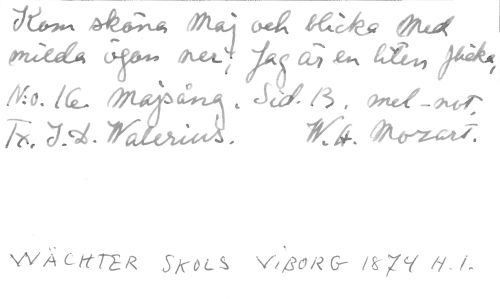 Kom sköna Maj och blicka Med
milda ögon ner; Jag är en liten flicka,
N:o. 16. Majsång. Sid. 13. mel-not.
Tx. J. D. Valerius. W. A. Mozart.
WÄCHTER SKOLS VIBORG 1874 H. I.